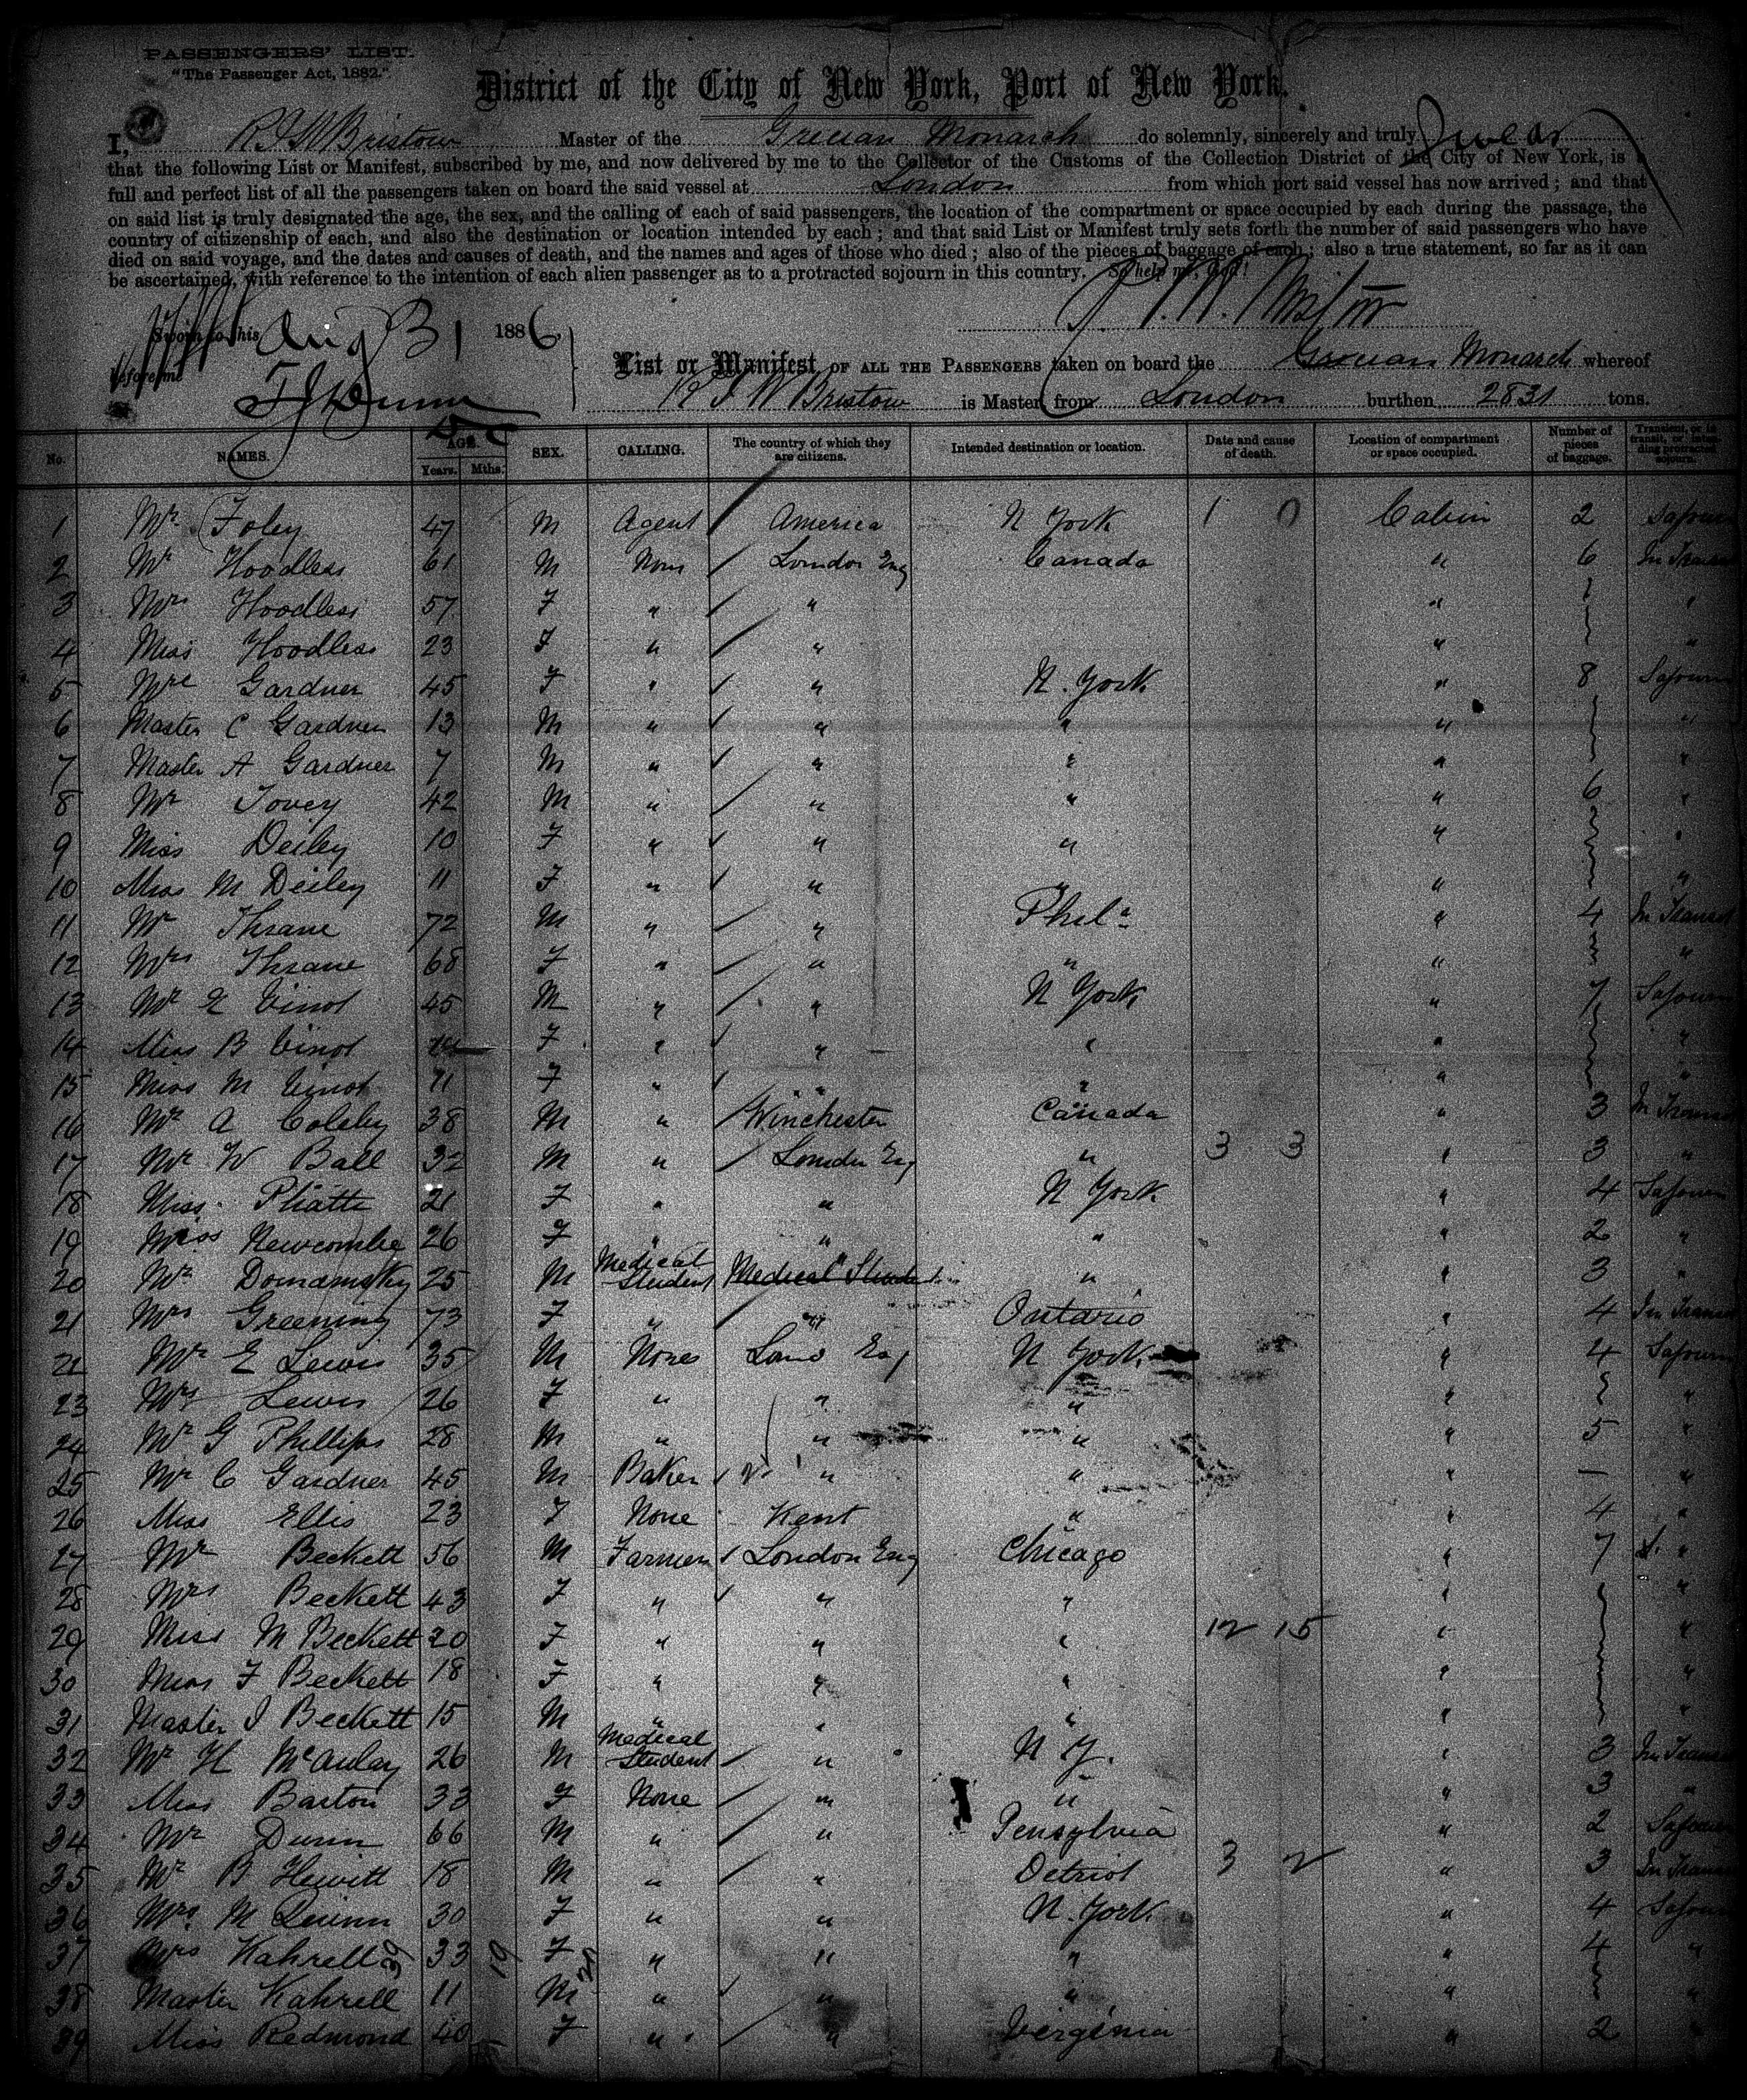 PASSENGERS' LIST.
"The Passenger Act, 1882."
District of the City of New York, Port of New York.
I, R J W Bristow Master of the Grecian Monarch do solemnly, sincerely and truly Swear
that the following List or Manifest, subscribed by me, and now delivered by me to the Collector of the Customs of the Collection District of the City of New York, is a
full and perfect list of all the passengers taken on board the said vessel at London from which port said vessel has now arrived; and that
on said list is truly designated the age, the sex, and the calling of each of said passengers, the location of the compartment or space occupied by each during the passage, the
country of citizenship of each, and also the destination or location intended by each; and that said List or Manifest truly sets forth the number of said passengers who have
died on said voyage, and the dates and causes of death, and the names and ages of those who died; also of the pieces of baggage of each; also a true statement, so far as it can
be ascertained, with reference to the intention of each alien passenger as to a protracted sojourn in this country. So help me God!
Sworn to this Aug 31 1886
before me
List or Manifest OF ALL THE PASSENGERS taken on board the Grecian Monarch whereof
R J W Bristow is Master, from London burthen 2831 tons.
No. NAMES. AGE. Years. Mths. SEX. CALLING. The country of which they are citizens. Intended destination or location. Date and cause of death. Location of compartment or space occupied. Number of pieces of baggage. Transient, or in transit, or intending protracted sojourn.
1 Mr Foley 47 M Agent America N York 1 0 Cabin 2 Sojourn
2 Mr Hoodless 61 M None London Eng Canada " 6 In Transit
3 Mrs Hoodless 57 F " " " "
4 Miss Hoodless 23 F " " " "
5 Mrs Gardner 45 F " " N. York " 8 Sojourn
6 Master C Gardner 13 M " " " " "
7 Master A Gardner 7 M " " " " "
8 Mr Tovey 42 M " " " " 6 "
9 Miss Deiley 10 F " " " " "
10 Miss M Deiley 11 F " " " " "
11 Mr Thrane 72 M " " Phila " 4 In Transit
12 Mrs Thrane 68 F " " " " "
13 Mr E Vinot 45 M " " N York " 7 Sojourn
14 Miss B Vinot F " " " " "
15 Miss M Vinot F " " " " "
16 Mr A Colsby 38 M " Winchester Canada " 3 In Transit
17 Mr W Ball 32 M " London Eng " 3 3 " 3 "
18 Miss Pliatte 21 F " " N York " 4 Sojourn
19 Miss Newcombe 26 F " " " " 2 "
20 Mr Domamsky 25 M Medical Student Medical Student " " 3 "
21 Mrs Greening 73 F " " Ontario " 4 In Transit
22 Mr E Lewis 35 M None Lond Eng N York " 4 Sojourn
23 Mrs Lewis 26 F " " " " "
24 Mr G Phillips 28 M " " " " 5 "
25 Mr C Gardner 45 M Baker " " " — "
26 Miss Ellis 23 F None Kent " " 4 "
27 Mr Beckett 56 M Farmer London Eng Chicago " 7 "
28 Mrs Beckett 43 F " " " " "
29 Miss M Beckett 20 F " " " 12 15 " "
30 Miss F Beckett 18 F " " " " "
31 Master J Beckett 15 M " " " " "
32 Mr H McAulay 26 M Medical Student " N Y. " 3 In Transit
33 Miss Barton 33 F None " " " 3 "
34 Mr Dunn 66 M " " Pensylvia " 2 Sojourn
35 Mr B Hewitt 18 M " " Detriot 3 2 " 3 In Transit
36 Mrs M Quinn 30 F " " N. York " 4 Sojourn
37 Mrs Kahrell 33 F " " " " 4 "
38 Master Kahrell 11 M " " " " "
39 Miss Redmond 40 F " " Verginia " 2 "